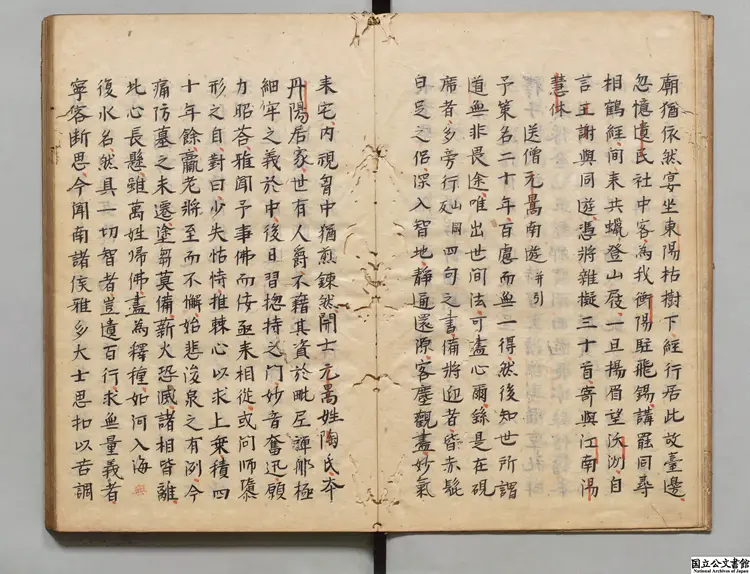 廟猶依然宴坐東陽枯樹下經行居此故臺邊
忽憶遺民社中客為我衡陽駐飛錫講罷同尋
相鶴經间来共蠟登山屐一旦揚眉望沃洲自
言王謝與同遊憑將雜擬三十首寄與江南湯
慧休
送僧元暠南遊 并引
予策名二十年百慮而無一得然後知世所謂
道無非畏途唯出世间法可盡心爾繇是在硯
席者多旁行四句之書備將迎者皆赤髭
白足之侣深入智地靜通還源客塵觀盡妙氣
来宅内視胷中猶煎鍊然開士元暠姓陶氏夲
丹陽居家世有人爵不藉其資於毗尼禪那極
細牢之義於中後日習揔持之門妙音奮迅願
力昭荅雅聞予事佛而佞亟来相從或問師隳
形之自對曰少失怙恃推棘心以求上乗積四
十年餘羸老將至而不懈始悲浚泉之有洌今
痛防墓之未遷塗芻莫備薪火恐滅諸相皆離
此心長懸雖萬姓歸佛盡為釋種如河入海無
復水名然具一切智者豈遺百行求無量義者
寧容断思今聞南諸侯雅多大士思扣以苦調
国立公文書館
National Archives of Japan